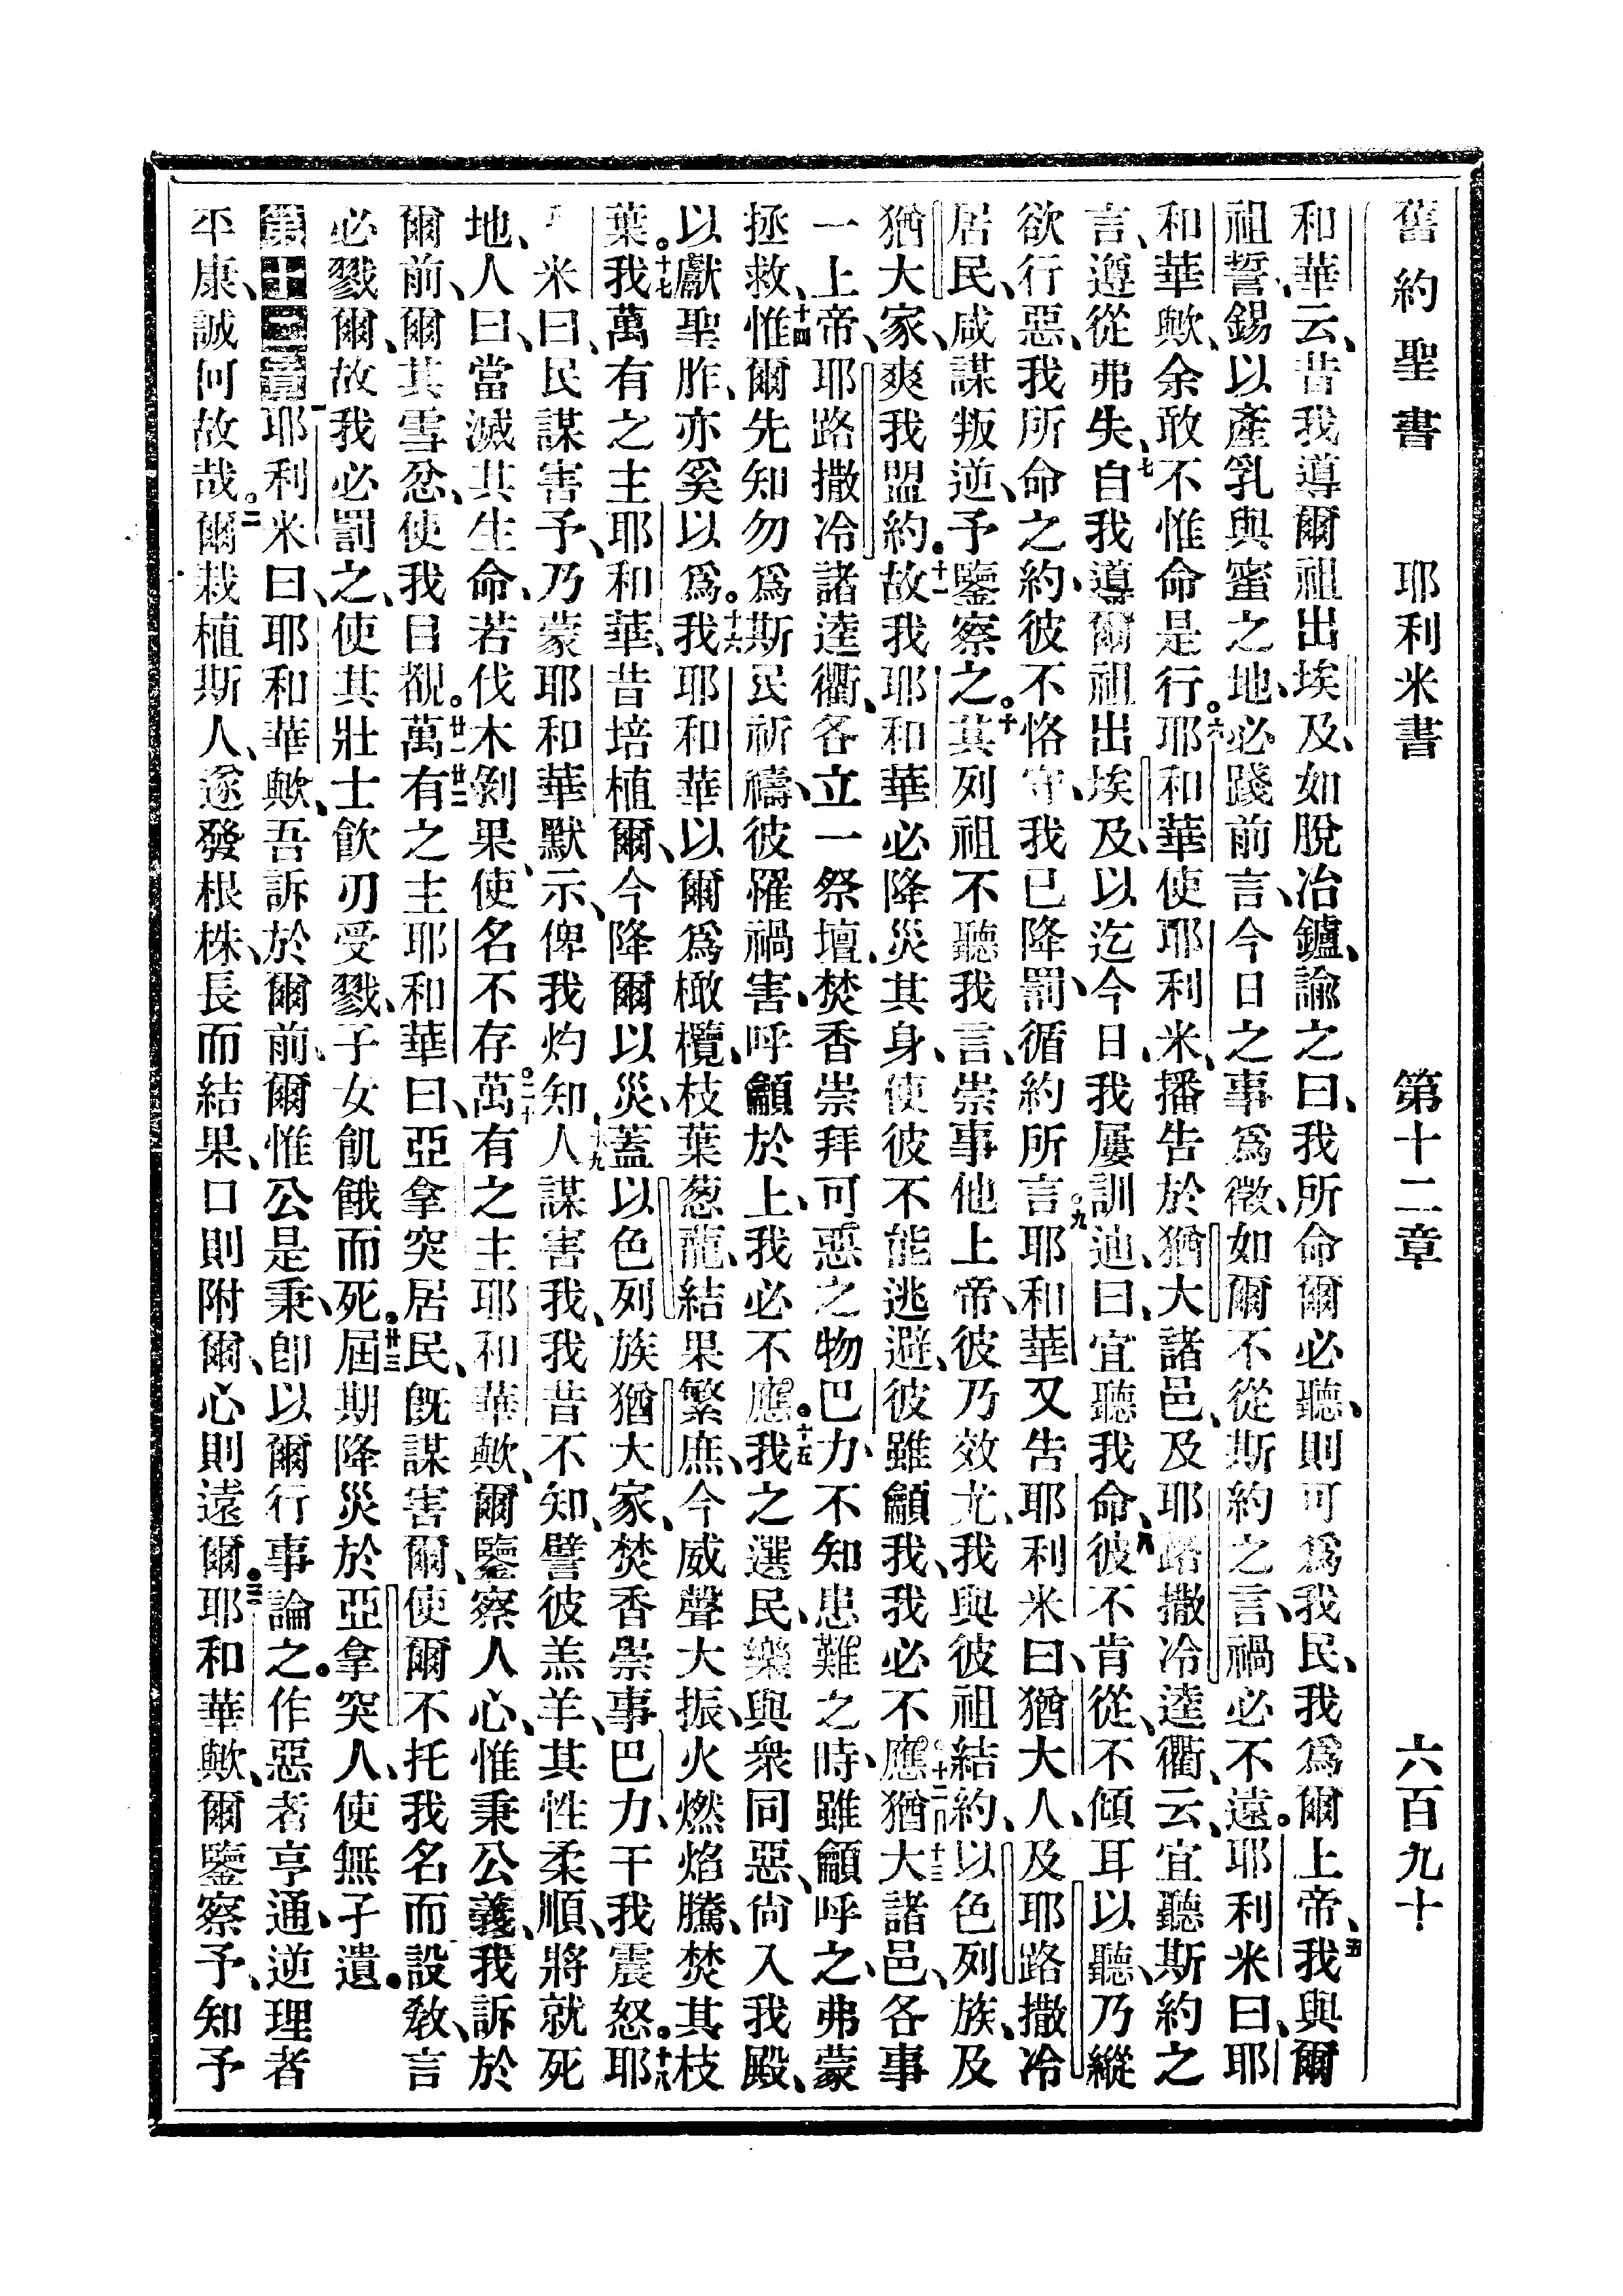 舊約聖書 耶利米書 第十二章 六百九十
和華云、昔我導爾祖出埃及、如脫冶鑪、諭之曰、我所命爾必聽、則可爲我民、我爲爾上帝、五我與爾
祖誓、錫以產乳與蜜之地、必踐前言、今日之事爲徵、如爾不從斯約之言、禍必不遠。耶利米曰、耶
和華歟、余敢不惟命是行。六耶和華使耶利米、播告於猶大諸邑、及耶路撒冷逵衢、云、宜聽斯約之
言、遵從弗失、七自我導爾祖出埃及、以迄今日、我屢訓迪、曰、宜聽我命、八彼不肯從、不傾耳以聽、乃縱
欲行惡、我所命之約、彼不恪守、我已降罰、循約所言。九耶和華又告耶利米曰、猶大人、及耶路撒冷
居民、咸謀叛逆、予鑒察之。十其列祖不聽我言、崇事他上帝、彼乃效尤、我與彼祖結約、以色列族、及
猶大家、爽我盟約。十一故我耶和華必降災其身、使彼不能逃避、彼雖龥我、我必不應。十二十三猶大諸邑、各事
一上帝、耶路撒冷諸逵衢、各立一祭壇、焚香崇拜可惡之物巴力、不知患難之時、雖龥呼之、弗蒙
拯救、十四惟爾先知勿爲斯民祈禱、彼罹禍害、呼龥於上、我必不應。十五我之選民、樂與衆同惡、尙入我殿、
以獻聖胙、亦奚以爲。十六我耶和華以爾爲橄欖、枝葉葱蘢、結果繁庶、今威聲大振、火燃焰騰、焚其枝
葉。十七我萬有之主耶和華、昔培植爾、今降爾以災、蓋以色列族猶大家、焚香崇事巴力、干我震怒。十八耶
米曰、民謀害予、乃蒙耶和華默示、俾我灼知、十九人謀害我、我昔不知、譬彼羔羊、其性柔順、將就死
地、人曰、當滅其生命、若伐木剝果、使名不存。二十萬有之主耶和華歟、爾鑒察人心、惟秉公義、我訴於
爾前、爾其雪忿、使我目覩。廿一廿二萬有之主耶和華曰、亞拿突居民、旣謀害爾、使爾不托我名而設教、言
必戮爾、故我必罰之、使其壯士飮刃受戮、子女飢餓而死。廿三屆期降災於亞拿突人、使無孑遺。
第十二章 一耶利米曰、耶和華歟、吾訴於爾前、爾惟公是秉、卽以爾行事論之。作惡者亨通、逆理者
平康、誠何故哉。二爾栽植斯人、遂發根株、長而結果、口則附爾、心則遠爾。三耶和華歟、爾鑒察予、知予